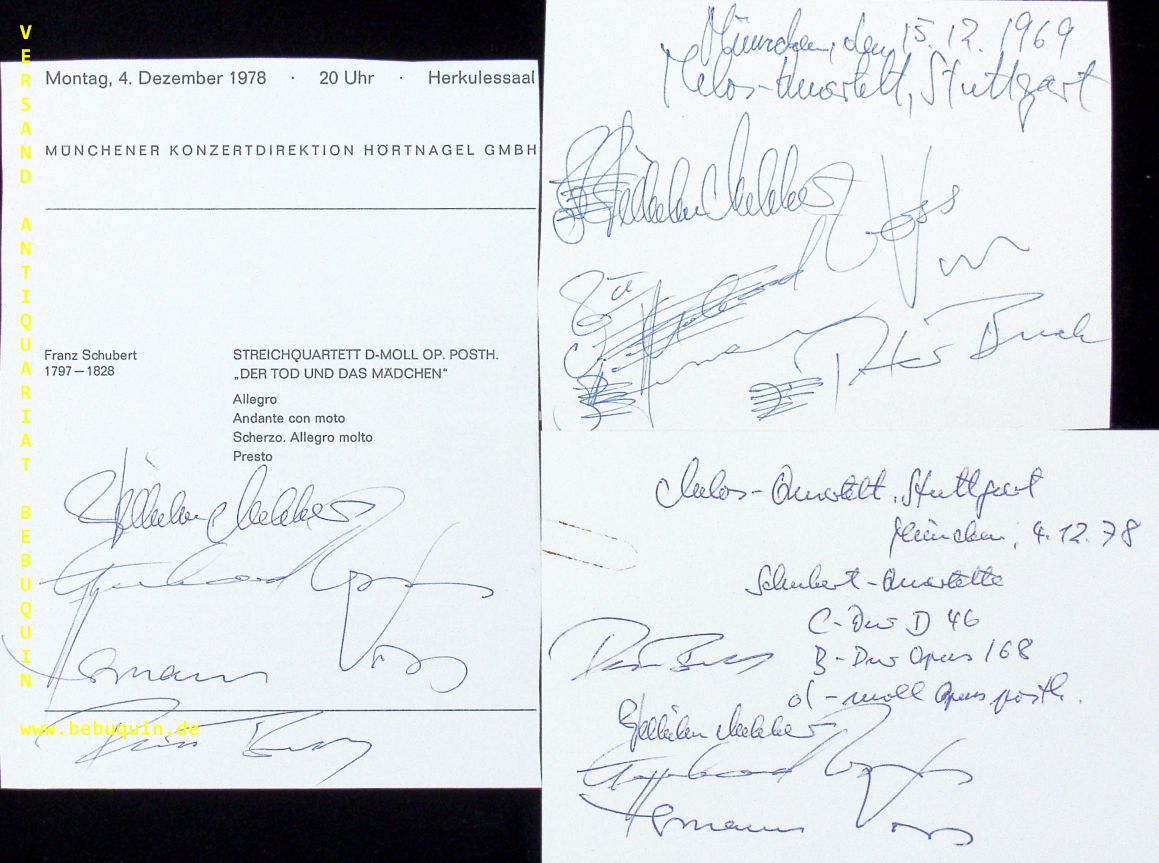 VERSAND ANTIQUARIAT BEBUQUIN
Montag, 4. Dezember 1978 · 20 Uhr · Herkulessaal
MÜNCHENER KONZERTDIREKTION HÖRTNAGEL GMBH
Franz Schubert
1797–1828
STREICHQUARTETT D-MOLL OP. POSTH.
„DER TOD UND DAS MÄDCHEN"
Allegro
Andante con moto
Scherzo. Allegro molto
Presto
Wilhelm Melcher
Gerhard Voss
Hermann Voss
Peter Buck
www.bebuquin.de
München, den 15.12.1969
Melos-Quartett, Stuttgart
Wilhelm Melcher
Voss
Hermann
Peter Buck
Melos-Quartett, Stuttgart
München, 4.12.78
Schubert-Quartette
C-Dur D 46
B-Dur Opus 168
d-moll Opus posth.
Peter Buck
Wilhelm Melcher
Gerhard Voss
Hermann Voss